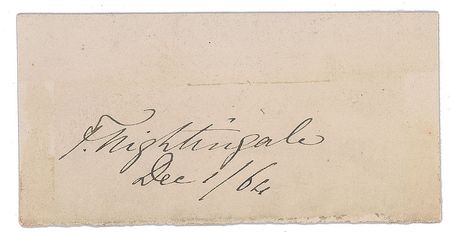 F. Nightingale
Dec 1/64